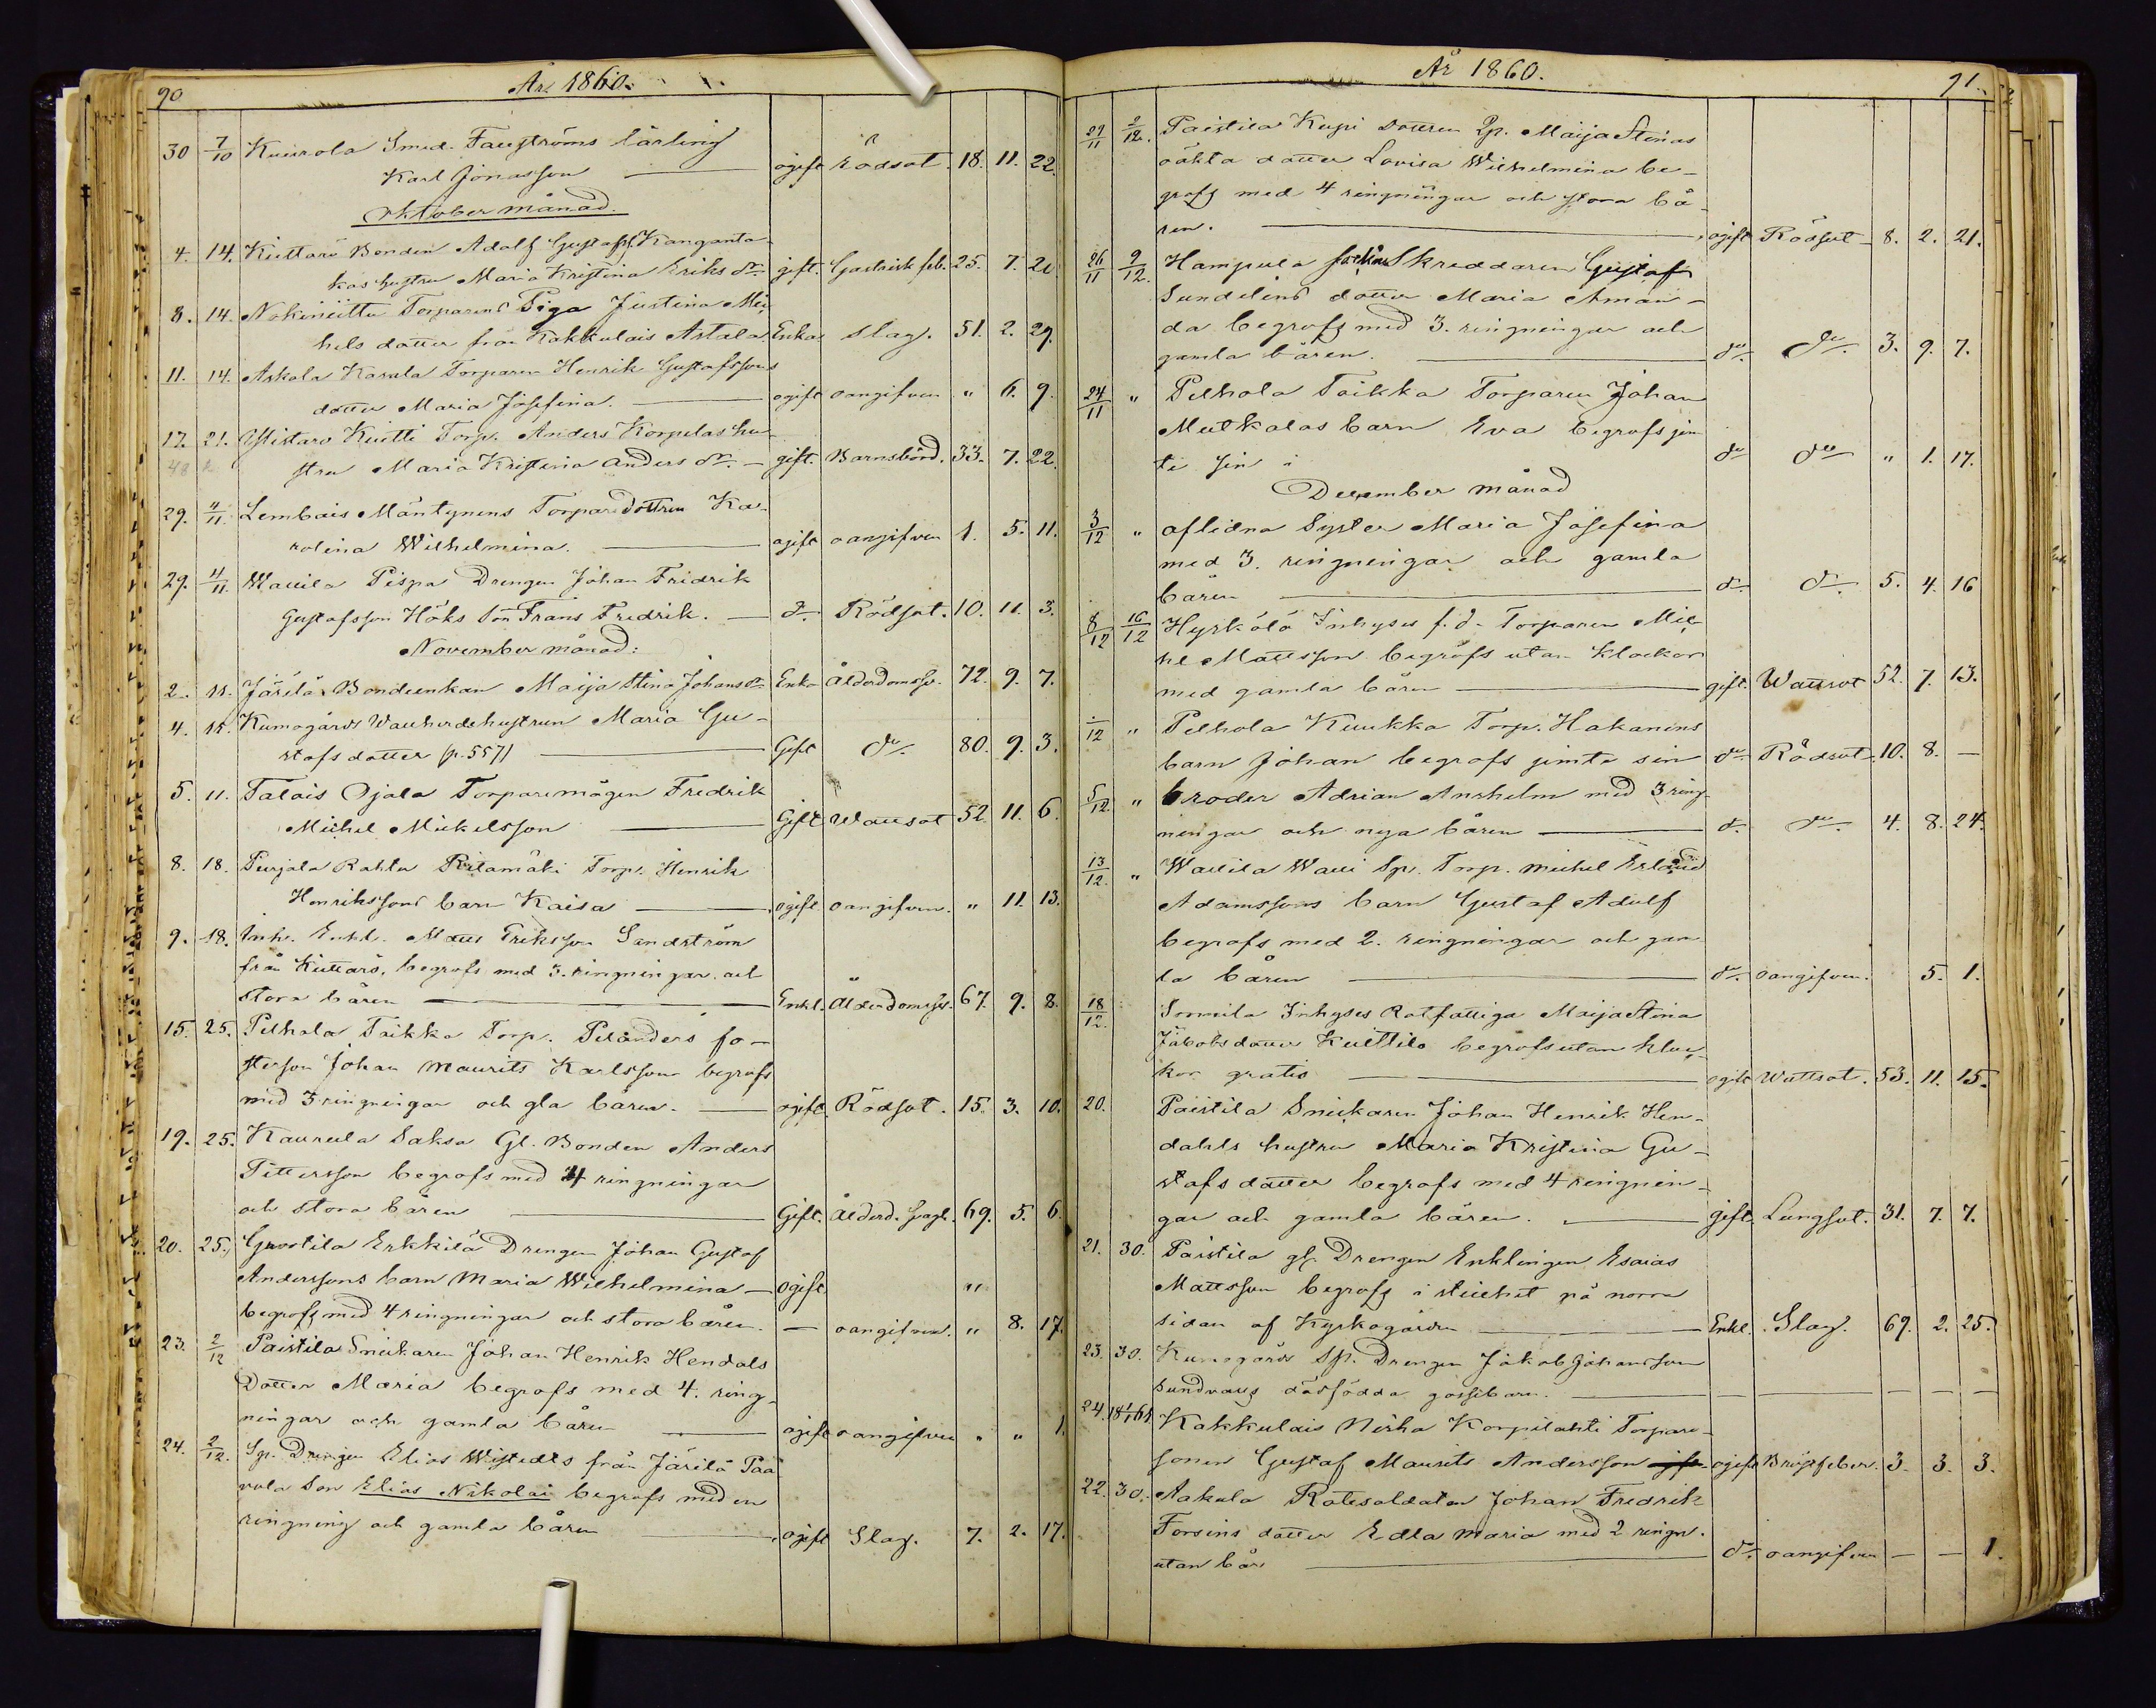 90
År 1860.
30 7/10 Kuirola Smed. Fagströms lärling
Karl Jonasson — ogift Rödsot. 18. 11. 22.
Oktober månad.
4. 14. Kiettare Bonden Adolf Gustafss. Kanganta-
kas hustru Maria Kristina Eriks dr. gift. Gastrisk feb. 25. 7. 20
8. 14. Nokiniittu Torparens Piga Justina Mic-
hels dotter från Kakkulais Astala. Enka Slag. 51. 2. 29.
11. 14. Askala Karala Torparen Henrik Gustafssons
dotter Maria Josefina. — ogift oangifven " 6. 9.
17. 21. Ylistaro Kuitti Torp. Anders Korpelas hu-
stru Maria Kristina Anders dr. — gift. Barnsbörd. 33. 7. 22.
29. 4/11. Lembais Mäntynens Torparedottren Ka-
rolina Wilhelmina. — ogift oangifven 1. 5. 11.
29. 4/11. Wauila Pispa Drengen Johan Fridrik
Gustafsson Höks son Frans Fredrik. — do. Rödsot. 10. 11. 3.
November månad:
2. 11. Järilä Bondeenkan Maija Stina Johansdr. Enka Ålderdomssv. 72. 9. 7.
4. 11. Kumogårds Wauherdehustrun Maria Gu-
stafsdotter (p. 557) — Gift do. 80. 9. 3.
5. 11. Talais Ojala Torparemågen Fredrik
Michel Mickelsson — Gift Wattsot 52. 11. 6.
8. 18. Peujala Rahla Ritamäki Torp. Henrik
Henrikssons barn Kaisa — ogift oangifven. " 11. 13.
9. 18. Inh. Enkl. Matts Eriksson Sandström
från Kiettarö, begrofs med 3. ringningar och
stora båren — Enkl. Ålderdomssv. 67. 9. 8.
15. 25. Pelhola Taikka Torp. Peländers fo-
sterson Johan Maurits Karlsson begrofs
med 3 ringningar och gla båren. — ogift Rödsot. 15. 3. 10.
19. 25. Kaurula Saksa Gl. Bonden Anders
Pettersson begrofs med 4 ringningar
och stora båren — Gift. Ålderd. svagh. 69. 5. 6.
20. 25. Gnostila Erkkilä Drengen Johan Gustaf
Anderssons barn Maria Wilhelmina — ogift "
begrofs med 4 ringningar och stora båren. — oangifven. " 8. 17.
23. 2/12 Paistila Snickaren Johan Henrik Hendals
Dotter Maria begrofs med 4. ring-
ningar och gamla båren — ogift oangifven " " 1.
24. 2/12. Sp. Drengen Elias Wistedts från Järilä Paa
vola Son Elias Nikolai begrofs med en
ringning och gamla båren — ogift Slag. 7. 2. 17.
År 1860.
91.
29/11 2/12. Paistila Kupi dottren Qp. Maija Stinas
oäkta dotter Lovisa Wilhelmina be-
grofs med 4 ringningar och stora bå-
ren. — ogift Rödsot 8. 2. 21.
26/11 9/12. Hampula socken Skreddaren Gustaf
Sundelins dotter Maria Aman-
da begrofs med 3. ringningar och
gamla båren. — do. do. 3. 9. 7.
24/11 " Pelhola Taikka Torparen Johan
Mutkalas barn Eva begrofs jem
te sin i do do " 1. 17.
December månad
3/12 " aflidna Syster Maria Josefina
med 3. ringningar och gamla
båren — do. do. 5. 4. 16
8/12 16/12 Hyrkölä Inhyses f.d. Torparen Mic-
hel Mattsson begrofs utan klockor
med gamla båren — gift. Wattsot 52. 7. 13.
/12 " Pelhola Kuukka Torp. Hakanens
barn Johan begrofs jemte sin do. Rödsot. 10. 8. —
5/12 " broder Adrian Anshelm med 3 ring-
ningar och nya båren — do. do. 4. 8. 24.
13/12. " Wauila Waui Sp. Torp. Michel Erland
Adamssons barn Gustaf Adolf
begrofs med 2. ringningar och gam
la båren — do. oangifven. 5. 1.
18/12. Sonnila Inhyses Rotfattiga Maija Stina
Jakobsdotter Kuittilo begrofs utan kloc-
kor gratis — ogift Wattsot. 53. 11. 15.
20. Paistila Snickaren Johan Henrik Hen-
dahls hustru Maria Kristina Gu-
stafsdotter begrofs med 4 ringnin-
gar och gamla båren. — gift. Lungsot. 31. 7. 7.
21. 30. Paistila gl. Drengen Enklingen Esaias
Mattsson begrofs i stillhet på norra
sidan af Kyrkogården — Enkl. Slag. 69. 2. 25.
23. 30. Kumogårds Sp. Drengen Jakob Johansson
Sundvaus dödfödda gossebarn. — — — — — —
24. 18/1 61. Kakkulais Nirha Korpilahti Torpare-
sonen Gustaf Maurits Andersson ogift Bröstfeber. 3. 3. 3.
22. 30. Aakula Rotesoldaten Johan Fredrik
Forsens dotter Edla Maria med 2 ringn.
utan bår — do. oangifven — — 1.